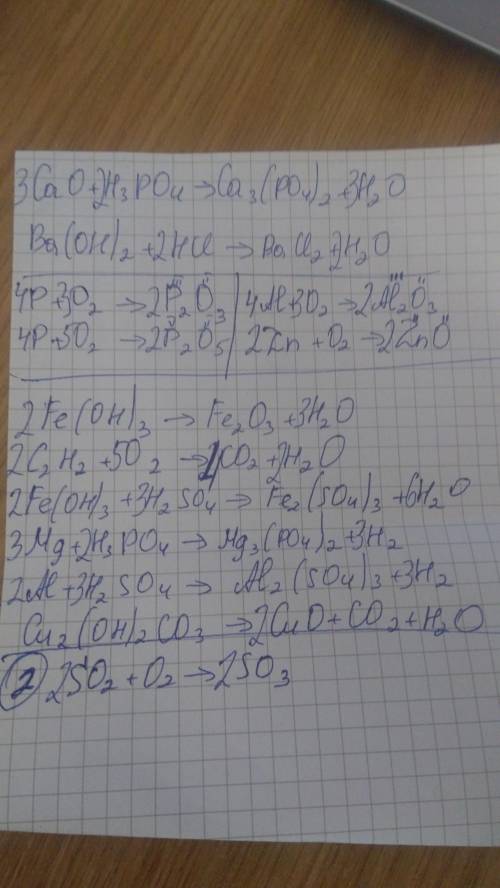 3CaO+2H₃PO₄→Ca₃(PO₄)₂+3H₂O
Ba(OH)₂+2HCl→BaCl₂+2H₂O
4P+3O₂→2P₂O₃ | 4Al+3O₂→2Al₂O₃
4P+5O₂→2P₂O₅ | 2Zn+O₂→2ZnO
2Fe(OH)₃→Fe₂O₃+3H₂O
2C₂H₂+5O₂→4CO₂+2H₂O
2Fe(OH)₃+3H₂SO₄→Fe₂(SO₄)₃+6H₂O
3Mg+2H₃PO₄→Mg₃(PO₄)₂+3H₂
2Al+3H₂SO₄→Al₂(SO₄)₃+3H₂
Cu₂(OH)₂CO₃→2CuO+CO₂+H₂O
② 2SO₂+O₂→2SO₃